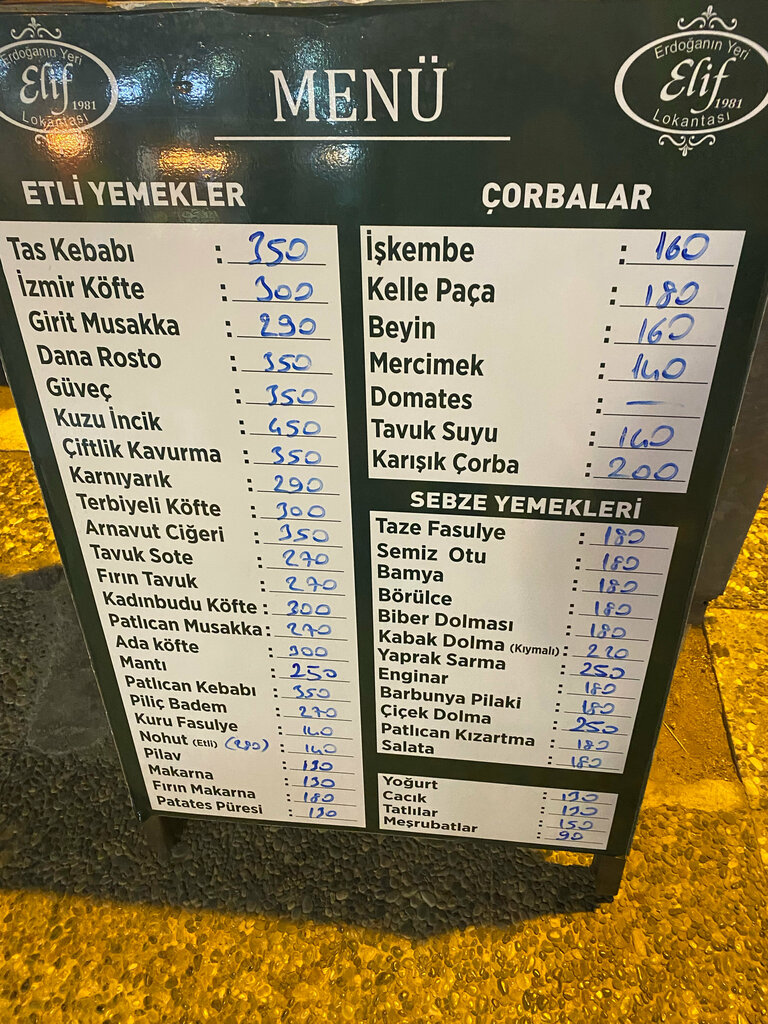 Erdoğanın Yeri
Elif
1981
Lokantası
MENÜ
Erdoğanın Yeri
Elif
1981
Lokantası
ETLİ YEMEKLER
Tas Kebabı : 350
İzmir Köfte : 300
Girit Musakka : 290
Dana Rosto : 350
Güveç : 350
Kuzu İncik : 450
Çiftlik Kavurma : 350
Karnıyarık : 290
Terbiyeli Köfte : 300
Arnavut Ciğeri : 350
Tavuk Sote : 270
Fırın Tavuk : 270
Kadınbudu Köfte : 300
Patlıcan Musakka : 270
Ada köfte : 300
Mantı : 250
Patlıcan Kebabı : 350
Piliç Badem : 270
Kuru Fasulye : 140
Nohut (Etli) (280) : 140
Pilav : 130
Makarna : 130
Fırın Makarna : 180
Patates Püresi : 130
ÇORBALAR
İşkembe : 160
Kelle Paça : 180
Beyin : 160
Mercimek : 140
Domates : —
Tavuk Suyu : 140
Karışık Çorba : 200
SEBZE YEMEKLERİ
Taze Fasulye : 180
Semiz Otu : 180
Bamya : 180
Börülce : 180
Biber Dolması : 180
Kabak Dolma (Kıymalı) : 220
Yaprak Sarma : 250
Enginar : 180
Barbunya Pilaki : 180
Çiçek Dolma : 250
Patlıcan Kızartma : 180
Salata : 180
Yoğurt : 130
Cacık : 130
Tatlılar : 150
Meşrubatlar : 90